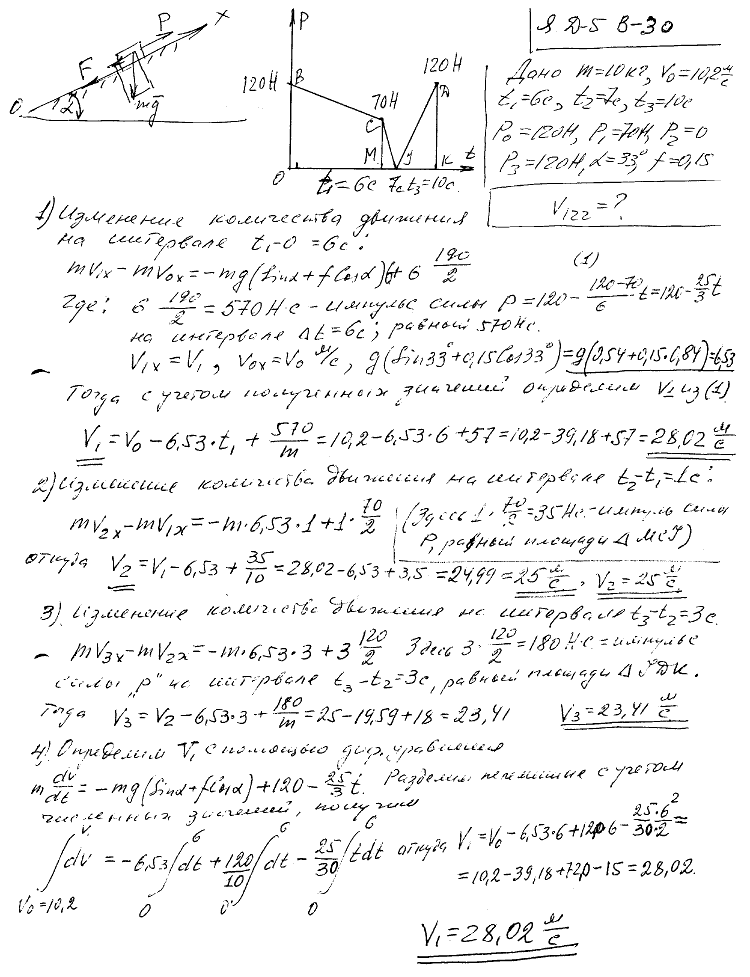 Я Д-5 В-30
Дано m=10кг, V₀=10,2 м/с
t₁=6с, t₂=7с, t₃=10с
P₀=120Н, P₁=70Н, P₂=0
P₃=120Н, α=33°, f=0,15
V₁,₂,₂=?
F P X
O α mḡ
P
120Н B 120Н
70Н Д
C
M J K t
O t₁=6с 7с t₃=10с
1) Изменение количества движения
на интервале t₁-0=6с:
mV₁ₓ-mV₀ₓ=-mg(Sinα+fCosα)6+6 190/2 (1)
Где: 6 190/2=570Нс-импульс силы P=120-120-70/6·t=120-25/3t
на интервале Δt=6с, равный 570Нс.
V₁ₓ=V₁, V₀ₓ=V₀ м/с, g(Sin33°+0,15Cos33°)=g(0,54+0,15·0,84)=6,53
Тогда с учетом полученных значений определим V₁ из (1)
V₁=V₀-6,53·t₁+570/m=10,2-6,53·6+57=10,2-39,18+57=28,02 м/с
2) Изменение количества движения на интервале t₂-t₁=1с:
mV₂ₓ-mV₁ₓ=-m·6,53·1+1·70/2 (Здесь 1·70/2=35Нс-импульс силы
P, равный площади Δ MCJ)
откуда V₂=V₁-6,53+35/10=28,02-6,53+3,5=24,99=25 м/с, V₂=25 м/с
3) Изменение количества движения на интервале t₃-t₂=3с.
- mV₃ₓ-mV₂ₓ=-m·6,53·3+3 120/2 Здесь 3·120/2=180Нс=импульс
силы „P" на интервале t₃-t₂=3с, равный площади Δ JДК.
Тогда V₃=V₂-6,53·3+180/m=25-19,59+18=23,41 V₃=23,41 м/с
4) Определим V₁ с помощью диф. уравнения
m dv/dt=-mg(Sinα+fCosα)+120-25/3t. Разделим переменные с учетом
численных значений, получим
∫dv=-6,53∫dt+120/10∫dt-25/30∫tdt откуда V₁=V₀-6,53·6+12·6-25·6²/30·2=
V₀=10,2 0 0 0 =10,2-39,18+72-15=28,02.
V₁=28,02 м/с